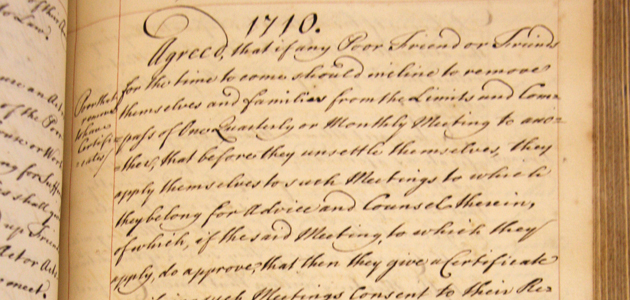 1710.
Agreed, that if any Poor Friend or Friends
for the time to come should incline to remove
themselves and families from the Limits and Com=
pass of One Quarterly or Monthly Meeting to ano=
ther, that before they unsettle themselves, they
apply themselves to such Meetings to which
they belong for Advice and Counsel therein,
of which, if the said Meeting, to which they
apply, do approve, that then they give a Certificate
such Meetings Consent to their Re=
Poor that
remove
to have
Certifi=
cates
to Law
use an Act
of the
ing for
shall
up
Act or Act